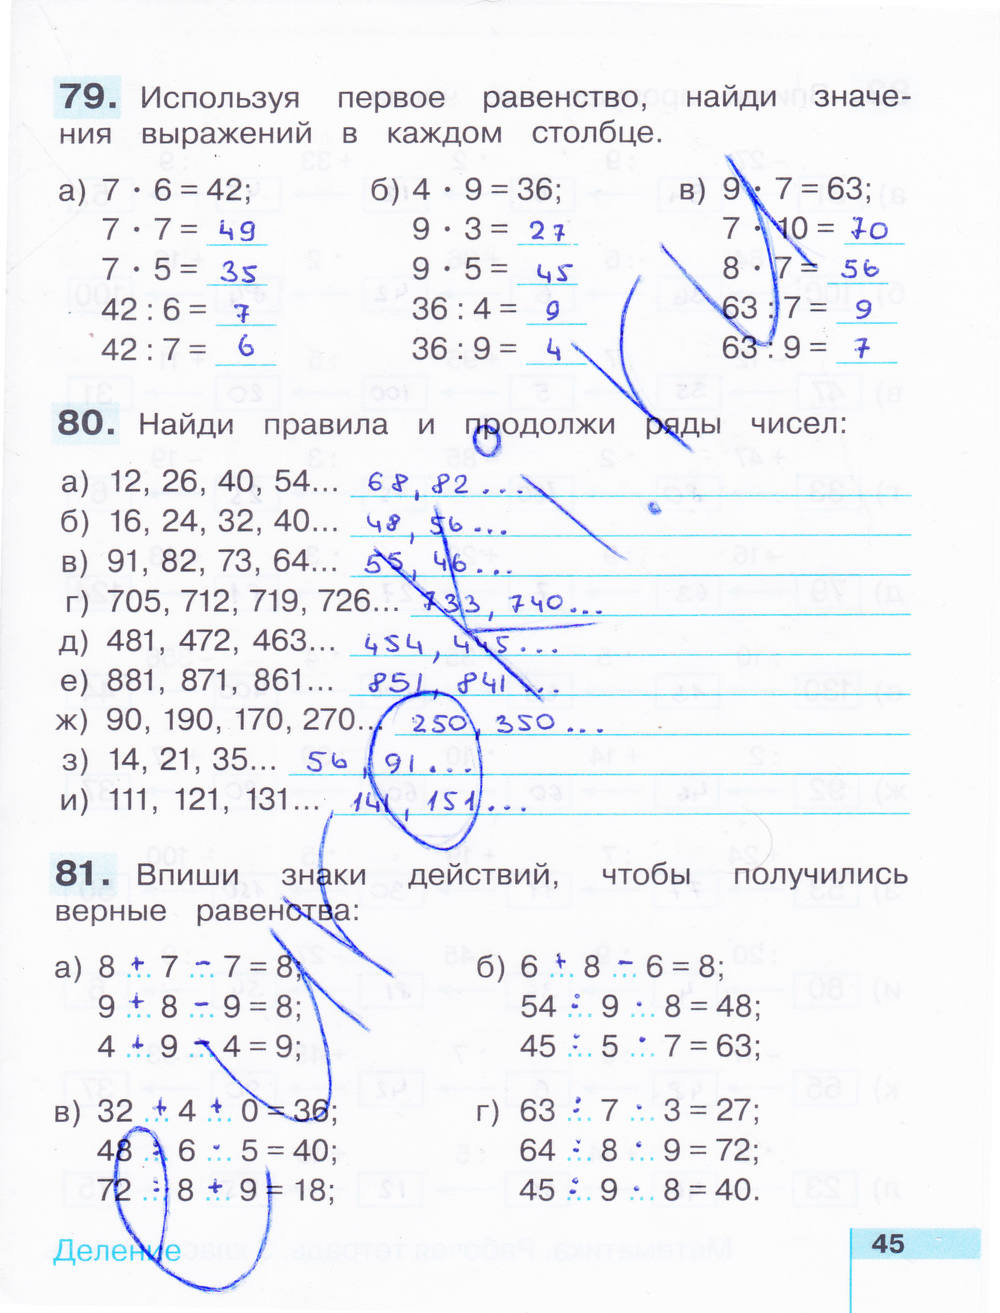 79. Используя первое равенство, найди значе-
ния выражений в каждом столбце.
а) 7 · 6 = 42; б) 4 · 9 = 36; в) 9 · 7 = 63;
7 · 7 = 49 9 · 3 = 27 7 · 10 = 70
7 · 5 = 35 9 · 5 = 45 8 · 7 = 56
42 : 6 = 7 36 : 4 = 9 63 : 7 = 9
42 : 7 = 6 36 : 9 = 4 63 : 9 = 7
80. Найди правила и продолжи ряды чисел:
а) 12, 26, 40, 54... 68, 82...
б) 16, 24, 32, 40... 48, 56...
в) 91, 82, 73, 64... 55, 46...
г) 705, 712, 719, 726... 733, 740...
д) 481, 472, 463... 454, 445...
е) 881, 871, 861... 851, 841...
ж) 90, 190, 170, 270... 250, 350...
з) 14, 21, 35... 56, 91...
и) 111, 121, 131... 141, 151...
81. Впиши знаки действий, чтобы получились
верные равенства:
а) 8 + 7 - 7 = 8; б) 6 + 8 - 6 = 8;
9 + 8 - 9 = 8; 54 : 9 · 8 = 48;
4 + 9 - 4 = 9; 45 : 5 · 7 = 63;
в) 32 + 4 + 0 = 36; г) 63 : 7 · 3 = 27;
48 : 6 · 5 = 40; 64 : 8 · 9 = 72;
72 : 8 + 9 = 18; 45 : 9 · 8 = 40.
Деление
45